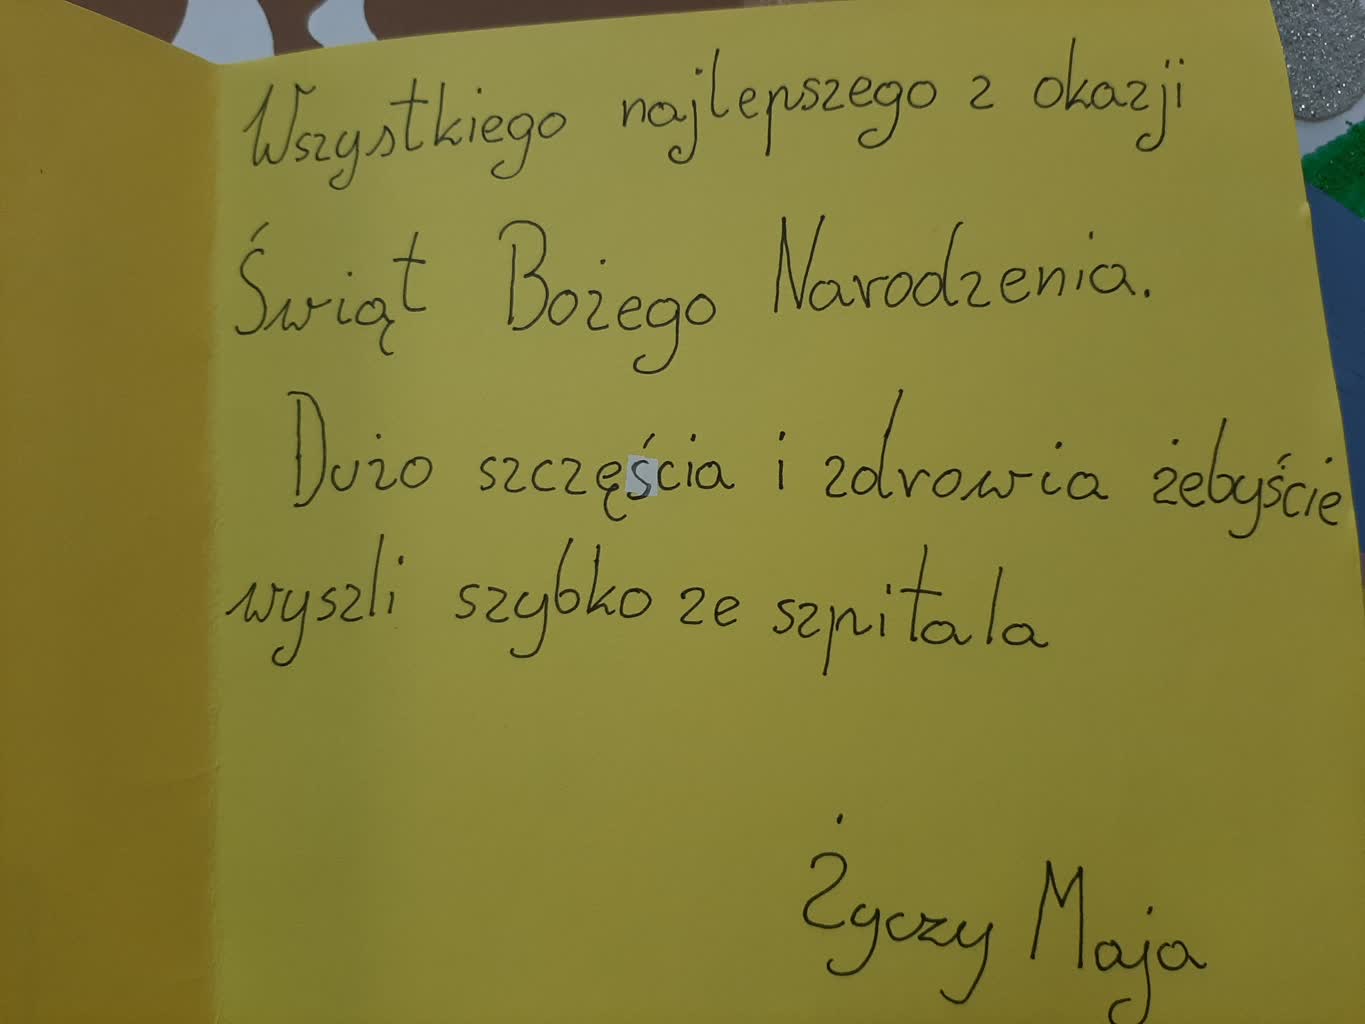 Wszystkiego najlepszego z okazji
Świąt Bożego Narodzenia.
Dużo szczęścia i zdrowia żebyście
wyszli szybko ze szpitala
Życzy Maja